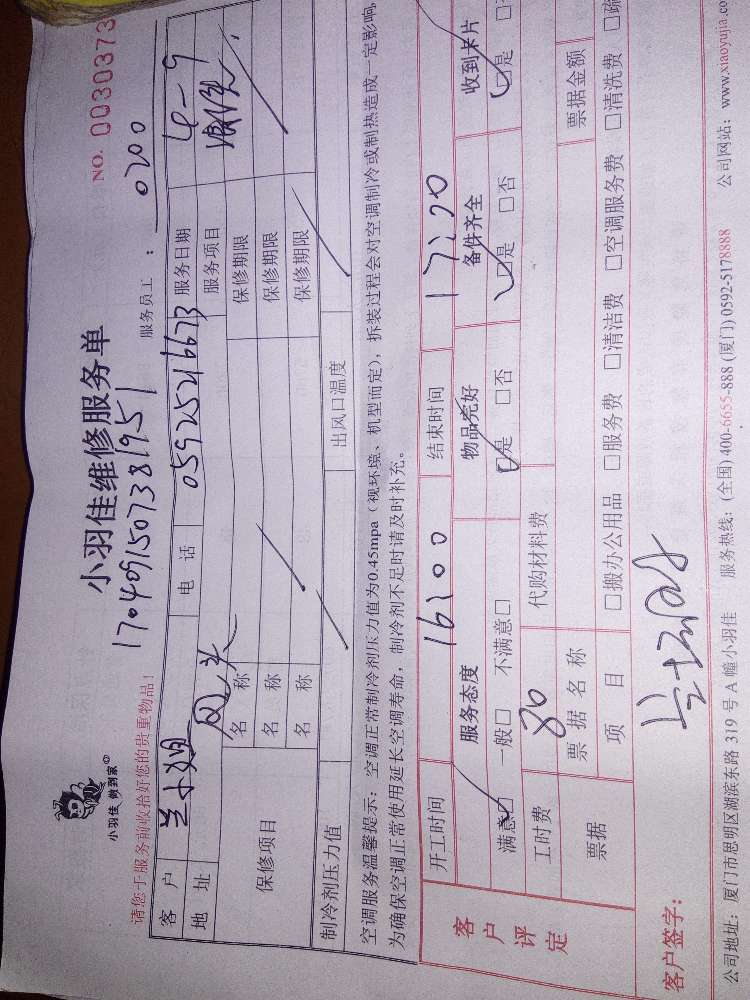 小羽佳 做到家
小羽佳维修服务单
NO. 0030373
170409150738195
请您于服务前收拾好您的贵重物品！
服务员工： 0200
客 户 兰小姐 电 话 05925216673 服务日期 4-9
地 址 服务项目
保修项目 名 称 保修期限
名 称 保修期限
名 称 保修期限
制冷剂压力值 出风口温度
空调服务温馨提示：空调正常制冷剂压力值为0.45mpa（视环境、机型而定），拆装过程会对空调制冷或制热造成一定影响，
为确保空调正常使用延长空调寿命，制冷剂不足时请及时补充。
客户评定 开工时间 16:00 结束时间 17:00
服务态度 物品完好 备件齐全 收到卡片
满意□ 一般□ 不满意□ □是 □否 □是 □否 □是 □
工时费 80 代购材料费
票据 票 据 名 称 票据金额
项 目 □搬办公用品 □服务费 □清洁费 □空调服务费 □清洗费 □疏
客户签字：
公司地址：厦门市思明区湖滨东路 319 号 A 幢小羽佳 服务热线：(全国) 400-6655-888 (厦门) 0592-5178888 公司网站：www.xiaoyujia.co